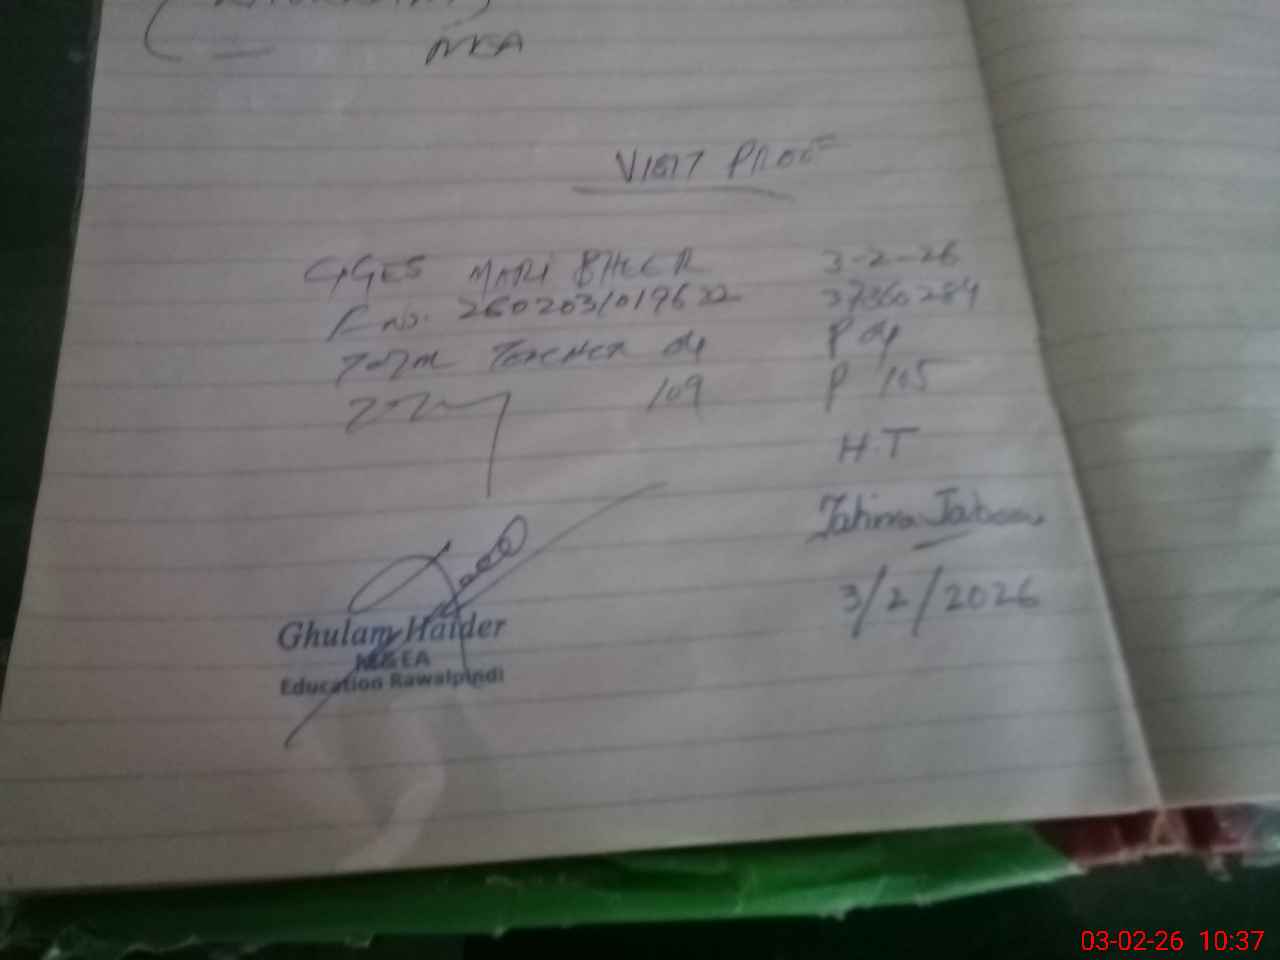 MEA
VISIT PROOF
GGES MARI BHEER 3-2-26
F no. 260203/019622 37360284
Total Teacher 04 P 04
109 P 105
H.T
3/2/2026
Ghulam Haider
M&EA
Education Rawalpindi
03-02-26 10:37